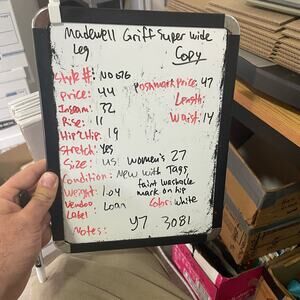 Madewell Griff Super Wide
Leg Copy
Style #: N0676
Poshmark Price: 47
Price: 44
Length:
Inseam: 32
Waist: 14
Rise: 11
Hip 2 hip: 19
Stretch: Yes
Size: US Women's 27
Condition: New with Tags,
faint washable
mark on hip
Weight: 1.04
Color: White
Vendoo
Label
Loan
Notes: Y7 3081